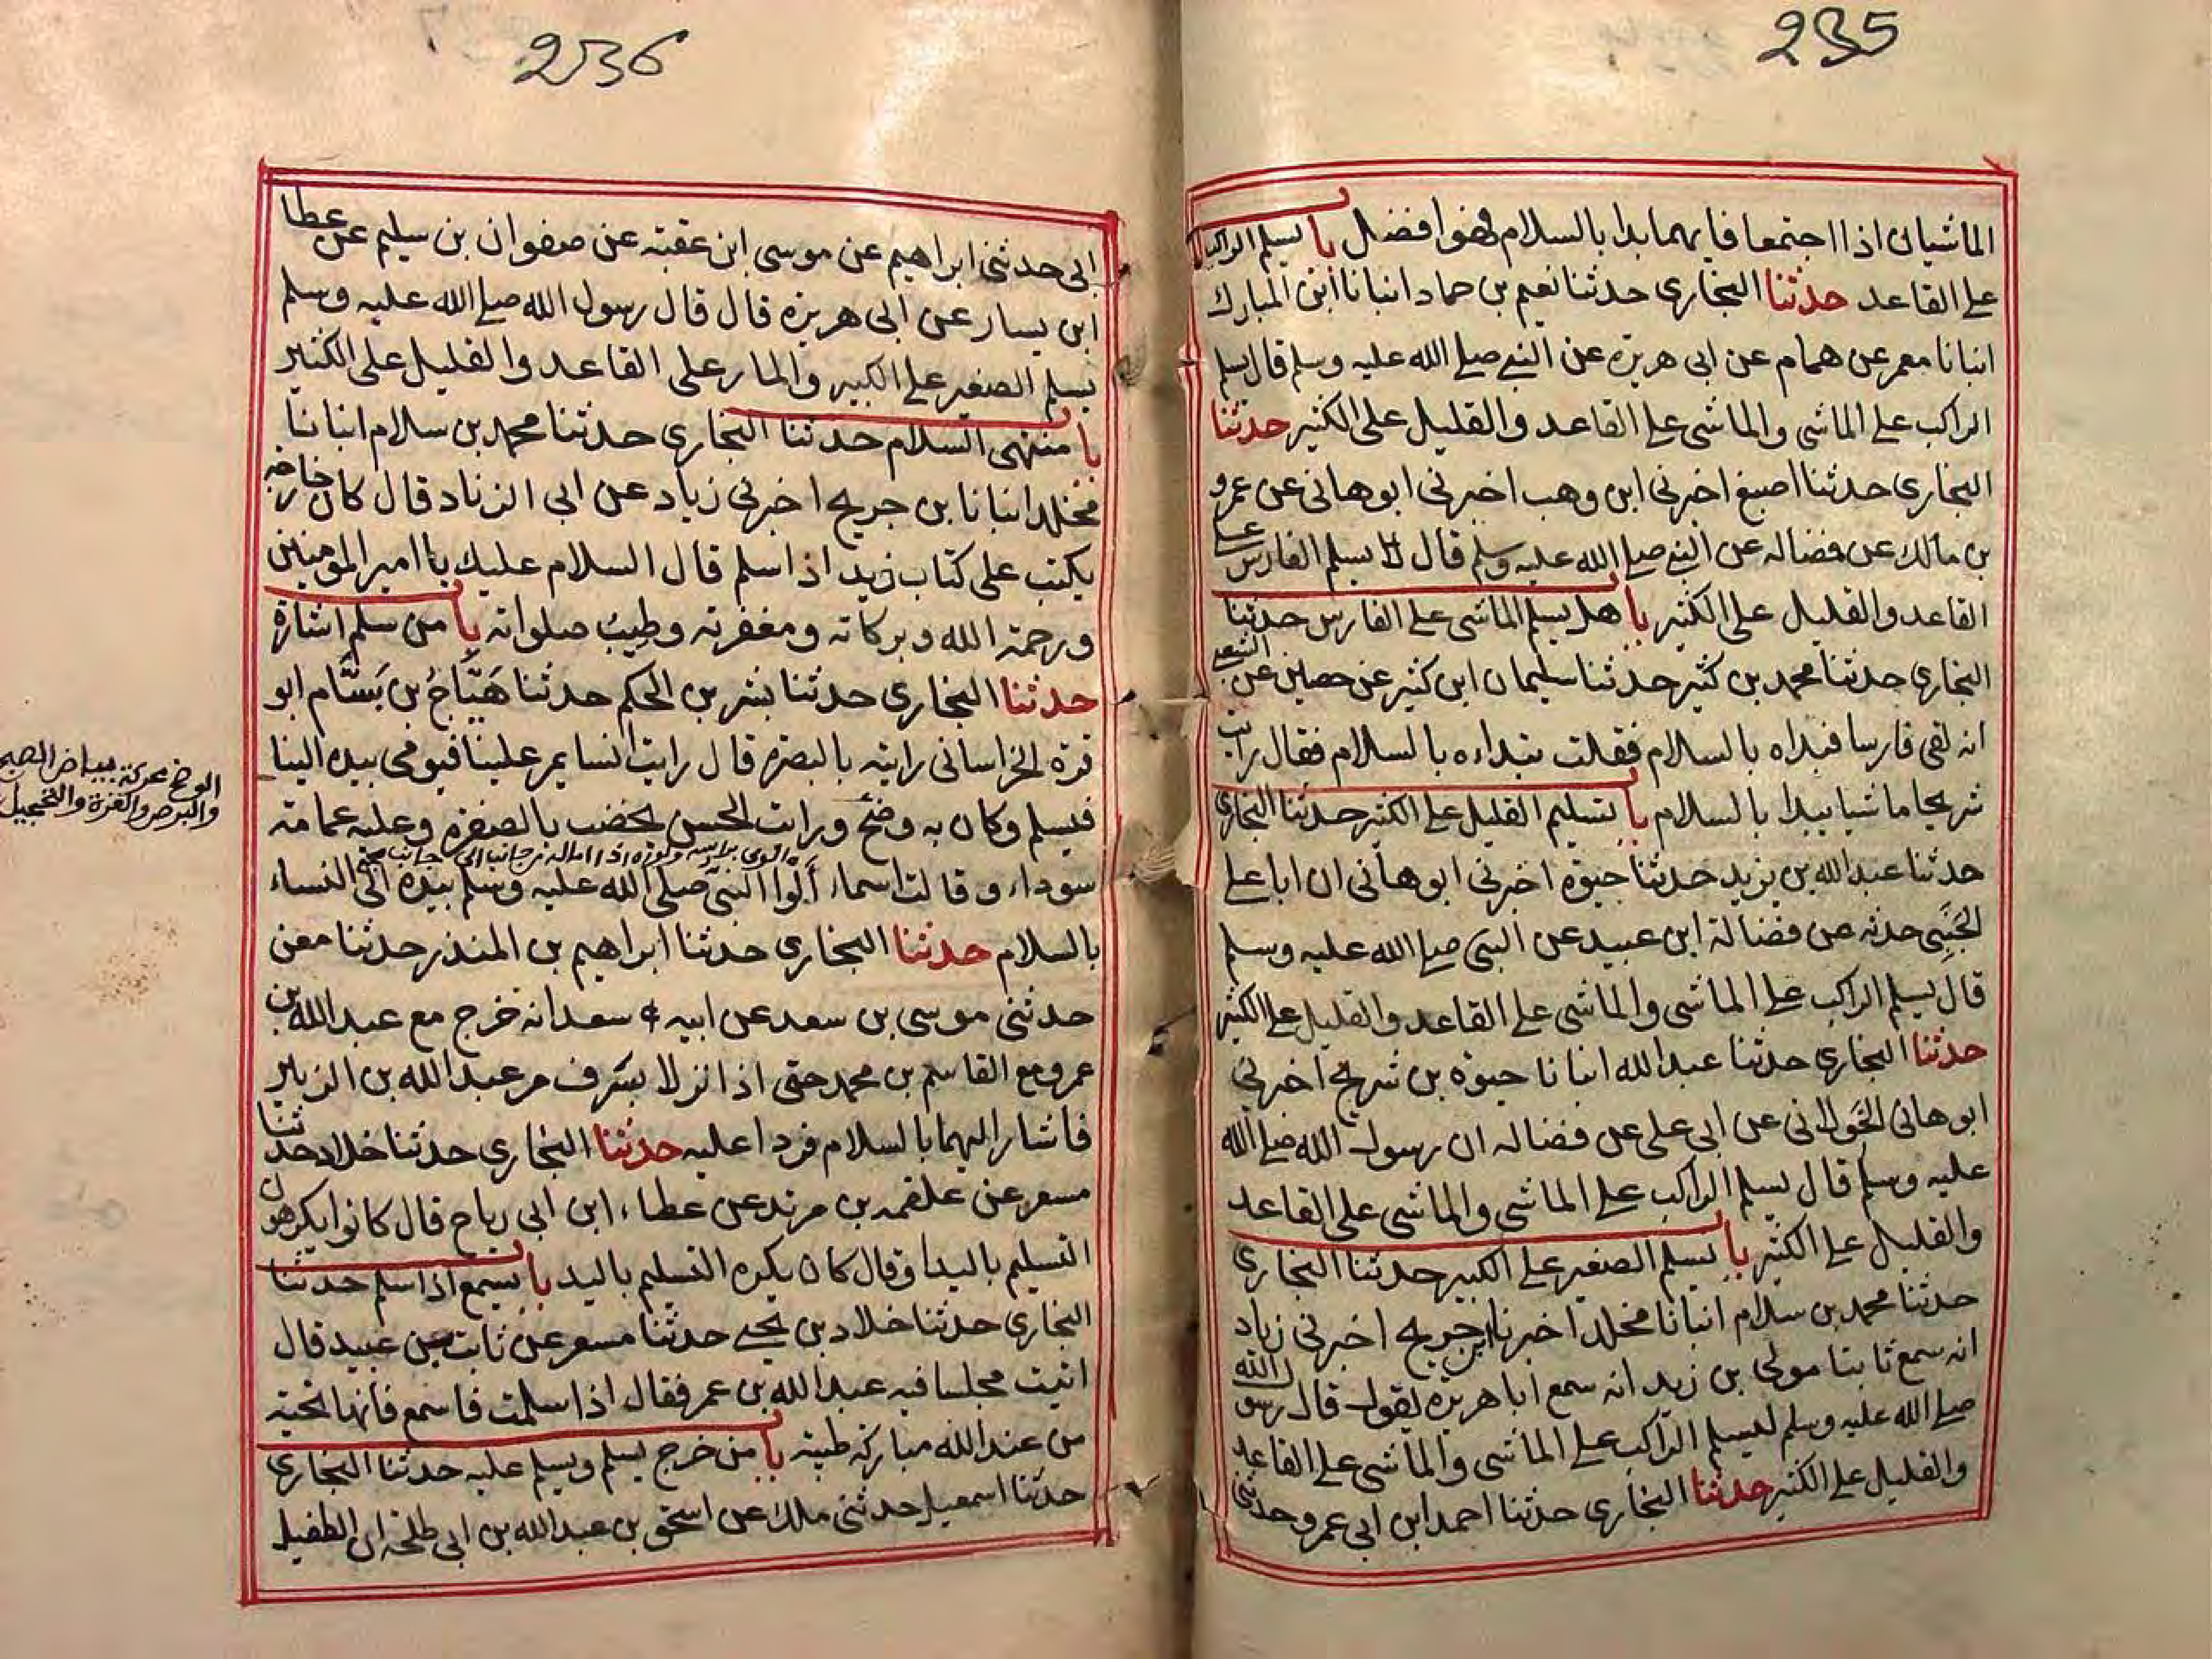 235
الماشيان اذا اجتمعا فايهما بدا بالسلام فهوا فضل با يسلم الراكب
على القاعد حدثنا البخاري حدثنا نعيم بن حماد انبانا ابن المبارك
انبانا معمر عن همام عن ابى هريرة عن النبي صلى الله عليه وسلم قال يسلم
الراكب على الماشي والماشى على القاعد والقليل على الكثير حدثنا
البخاري حدثنا اصبغ اخبرني ابن وهب اخبرني ابو هانى عن عمرو
بن مالك عن فضاله عن النبي صلى الله عليه وسلم قال يسلم الفارس على
القاعد والقليل على الكثير با هل يسلم الماشى على الفارس حدثنا
البخاري حدثنا محمد بن كثير حدثنا سليمان ابن كثير عن حصين عن الشعبي
انه لقى فارسا فبداه بالسلام فقلت تبداءه بالسلام فقال رايت
شريحا ماشيا يبدا بالسلام با تسليم القليل على الكثير حدثنا البخاري
حدثنا عبد الله بن يزيد حدثنا حيوة اخبرني ابو هانى ان ابا على
الجَنبي حدثه عن فضالة ابن عبيد عن النبى صلى الله عليه وسلم
قال يسلم الراكب على الماشى والماشى على القاعد والقليل على الكثير
حدثنا البخاري حدثنا عبد الله انبانا حيوة بن شريح اخبرني
ابو هانى الخَولانى عن ابى على عن فضاله ان رسول الله صلى الله
عليه وسلم قال يسلم الراكب على الماشى والماشى على القاعد
والقليل على الكثير با يسلم الصغير على الكبير حدثنا البخاري
حدثنا محمد بن سلام انبانا مخلد اخبرنا ابن جريج اخبرني زياد
انه سمع ثابتا مولى بن زيد انه سمع ابا هريرة يقول قال رسول الله
صلى الله عليه وسلم ليسلم الراكب على الماشى والماشى على القاعد
والقليل على الكثير حدثنا البخاري حدثنا احمد ابن ابى عمرو حدثنى
236
ابى حدثنى ابراهيم عن موسى ابن عقبة عن صفوان بن سليم عن عطا
ابن يسار عن ابى هريرة قال قال رسول الله صلى الله عليه وسلم
يسلم الصغير على الكبير والمار على القاعد والقليل على الكثير
با منتهى السلام حدثنا البخاري حدثنا محمد بن سلام انبانا
مخلد انبانا بن جريج اخبرني زياد عن ابى الزناد قال كان خارجه
يكتب على كتاب زيد اذا سلم قال السلام عليك يا امير المومنين
ورحمة الله وبركاته ومغفرته وطيبُ صلواته با من سلم اشارة
حدثنا البخاري حدثنا بشر بن الحكم حدثنا هَيَّاجُ بن بَسَّام ابو
قرة الخراسانى رايته بالبصرة قال رايت انسا يمر علينا فيومى بيده الينا
فيسلم وكان به وضح ورايت الحسن يخضب بالصفرة وعليه عمامة
سوداء وقالت اسماء ألوا النبى صلى الله عليه وسلم بيده الى النساء
بالسلام حدثنا البخاري حدثنا ابراهيم بن المنذر حدثنا معن
حدثنى موسى بن سعد عن ابيه سعد انه خرج مع عبد الله بن
عمرو مع القاسم بن محمد حتى اذا نزلا بسَرِف مر عبد الله بن الزبير
فاشار اليهما بالسلام فردا عليه حدثنا البخاري حدثنا خلاد حدثنا
مسعر عن علقمه بن مرثد عن عطاء ابن ابى رباح قال كانوا يكرهون
التسليم باليد او قال كان يكره التسليم باليد با يسمع اذا سلم حدثنا
البخاري حدثنا خلاد بن يحيى حدثنا مسعر عن ثابت بن عبيد قال
اتيت مجلسا فيه عبد الله بن عمر فقال اذا سلمت فاسمع فانها تحية
من عند الله مباركة طيبة با من خرج يسلم ويسلم عليه حدثنا البخاري
حدثنا اسمعيل حدثنى ملك عن اسحق بن عبد الله بن ابى طلحة ان الطفيل
الوضح محركة بياض الصبح
والبرص والغرة والتحجيل